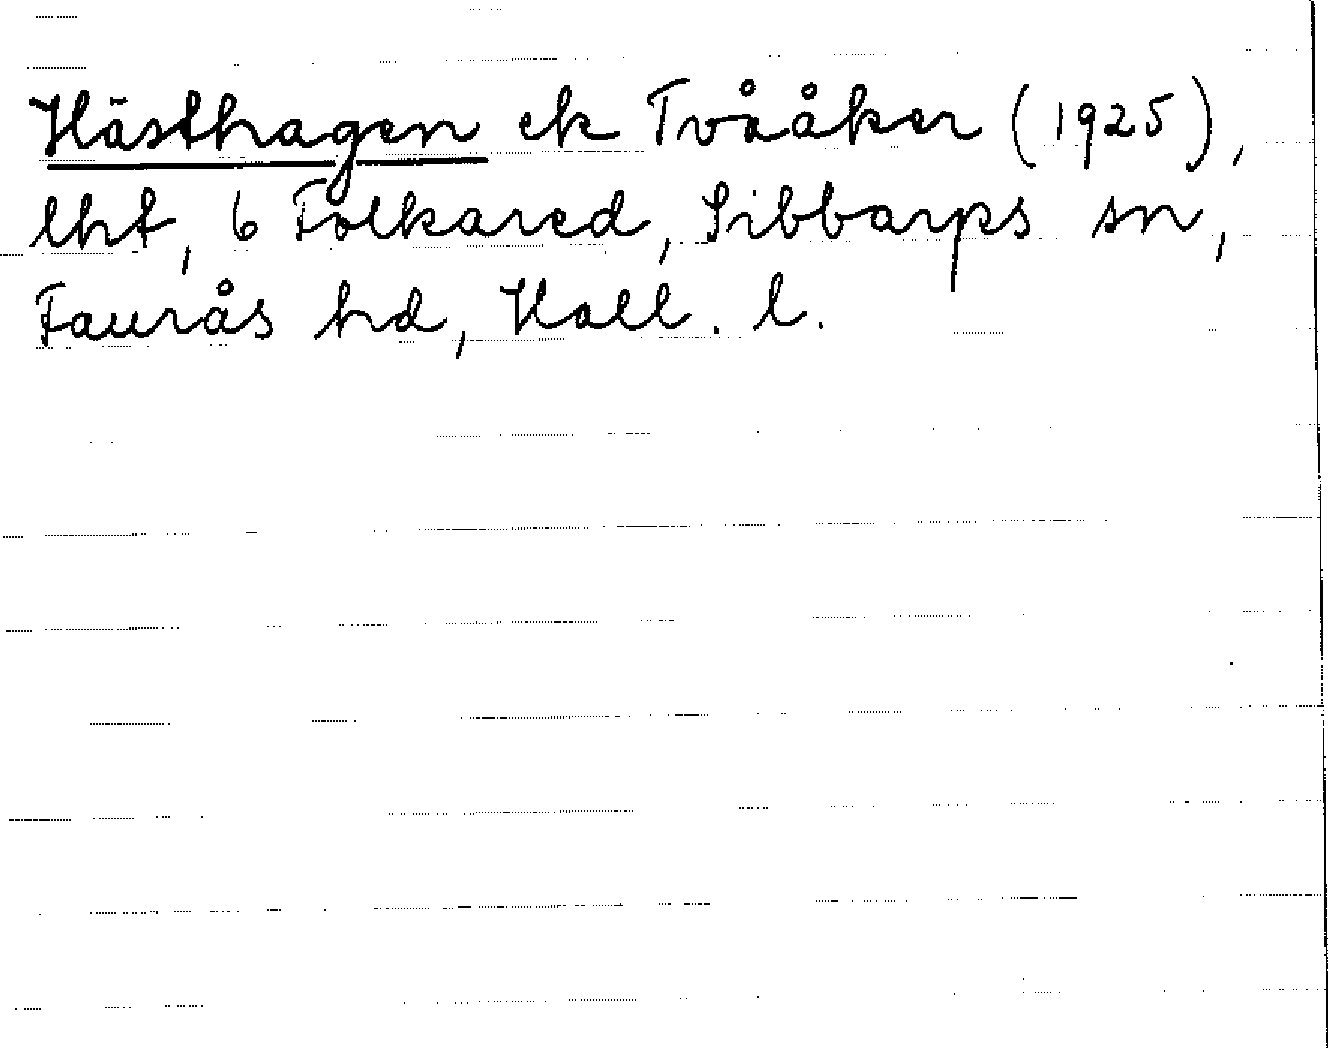 Hästhagen ek Tvååker (1925),
lht, 6 Folkared, Sibbarps sn,
Faurås hd, Hall. l.